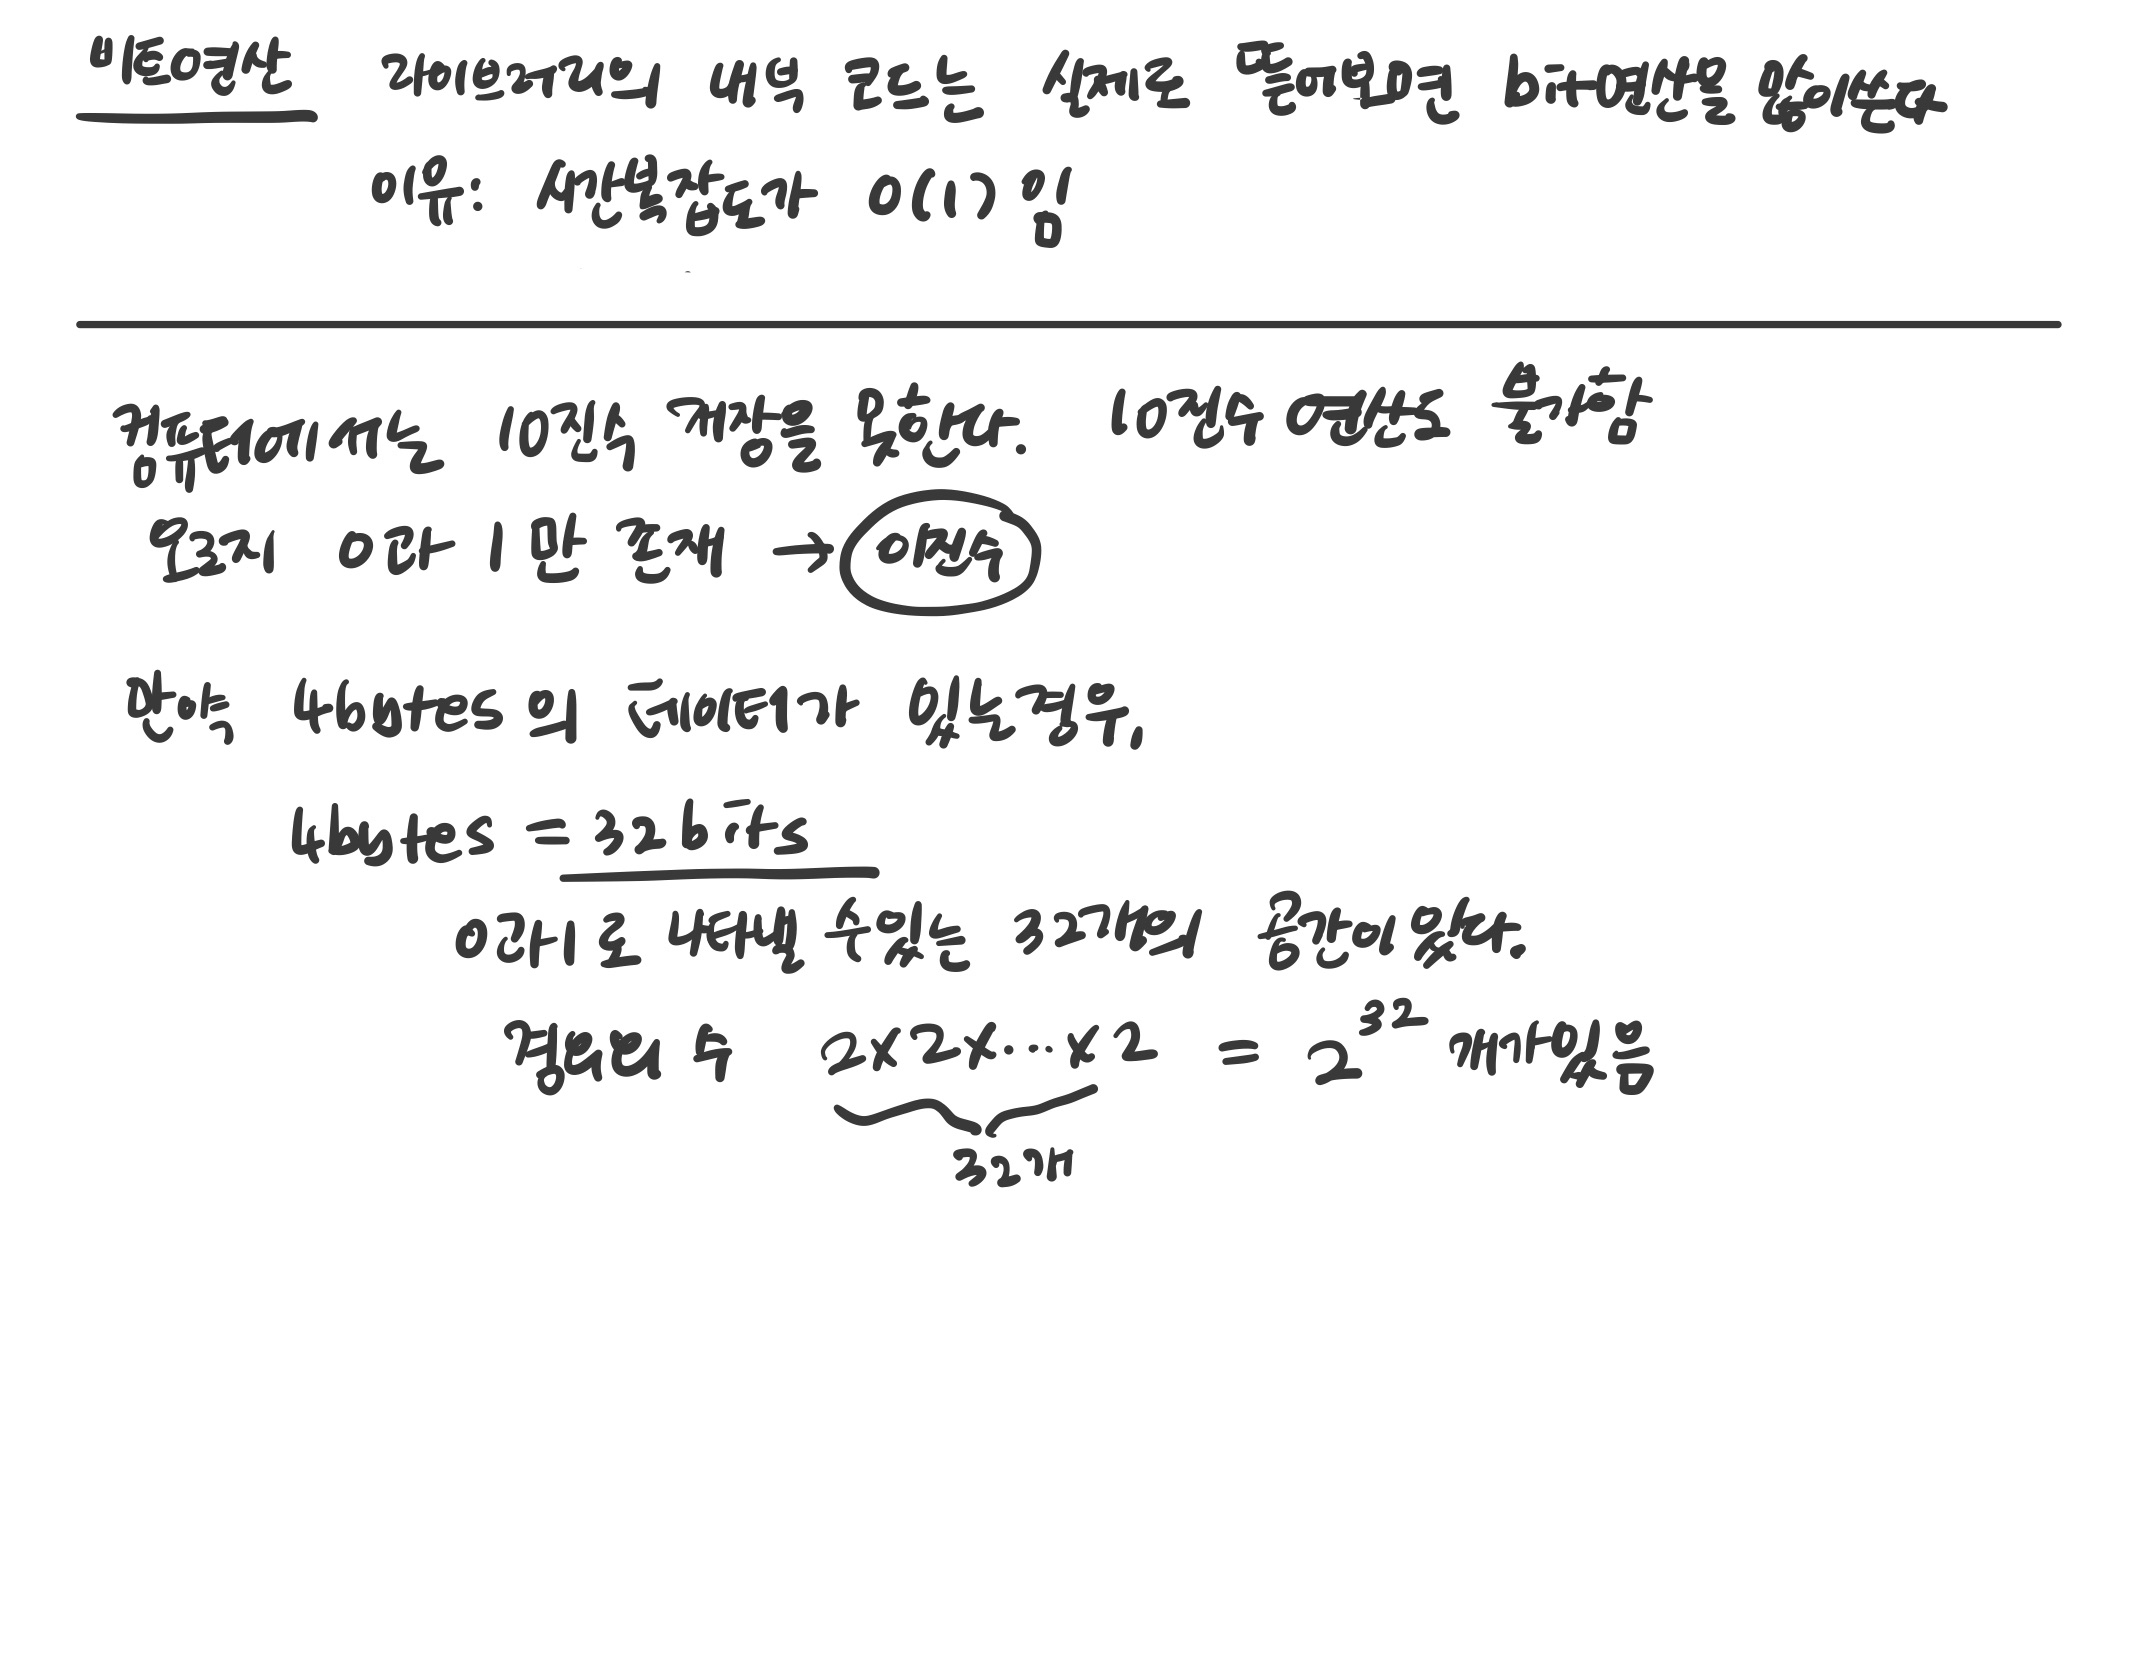 비트연산 라이브러리의 내부 코드는 실제로 뜯어보면 bit연산을 많이쓴다
이유: 시간복잡도가 O(1) 임
컴퓨터에서는 10진수 저장을 못한다. 10진수 연산도 불가함
오로지 0과 1만 존재 → 이진수
만약 4bytes의 데이터가 있는경우,
4bytes = 32bits
0과1로 나타낼 수있는 32개의 공간이 있다.
경우의 수 2×2×···×2 = 2³² 개가있음
32개